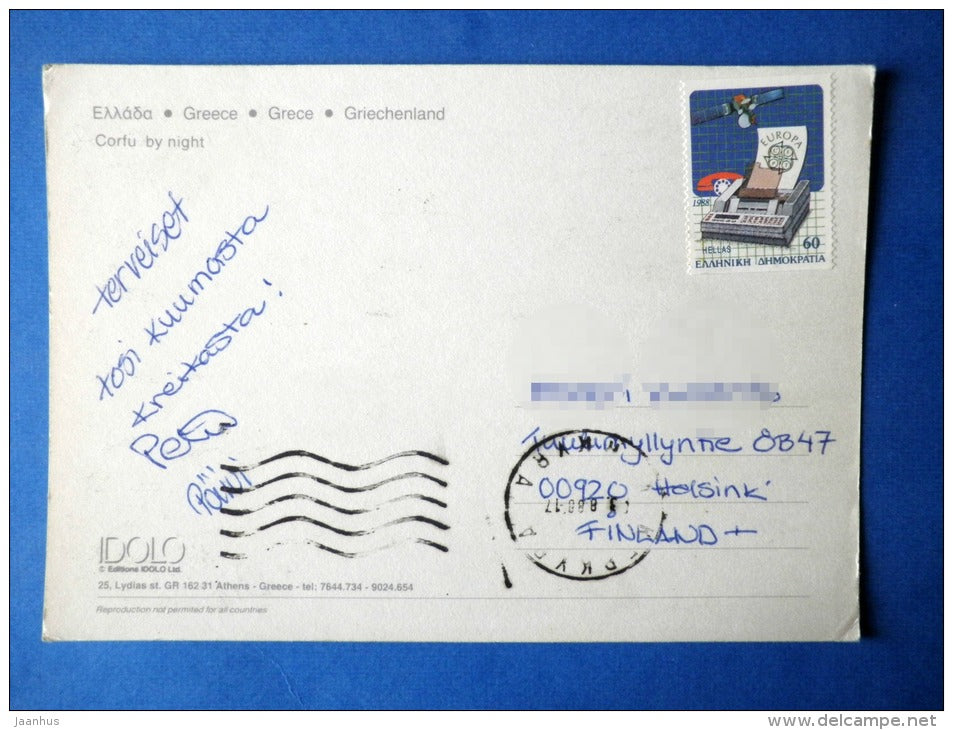 Ελλάδα • Greece • Grece • Griechenland
Corfu by night
EUROPA
1988
HELLAS
60
ΕΛΛΗΝΙΚΗ ΔΗΜΟΚΡΑΤΙΑ
terveiset
tosi kuumasta
kreikasta!
Päivi
Tuulimyllyntie 8B47
00920 Helsinki
FINLAND
IDOLO
© Editions IDOLO Ltd.
25, Lydias st. GR 162 31 Athens - Greece - tel: 7644.734 - 9024.654
Reproduction not permited for all countries
Jaanhus
www.delcampe.net